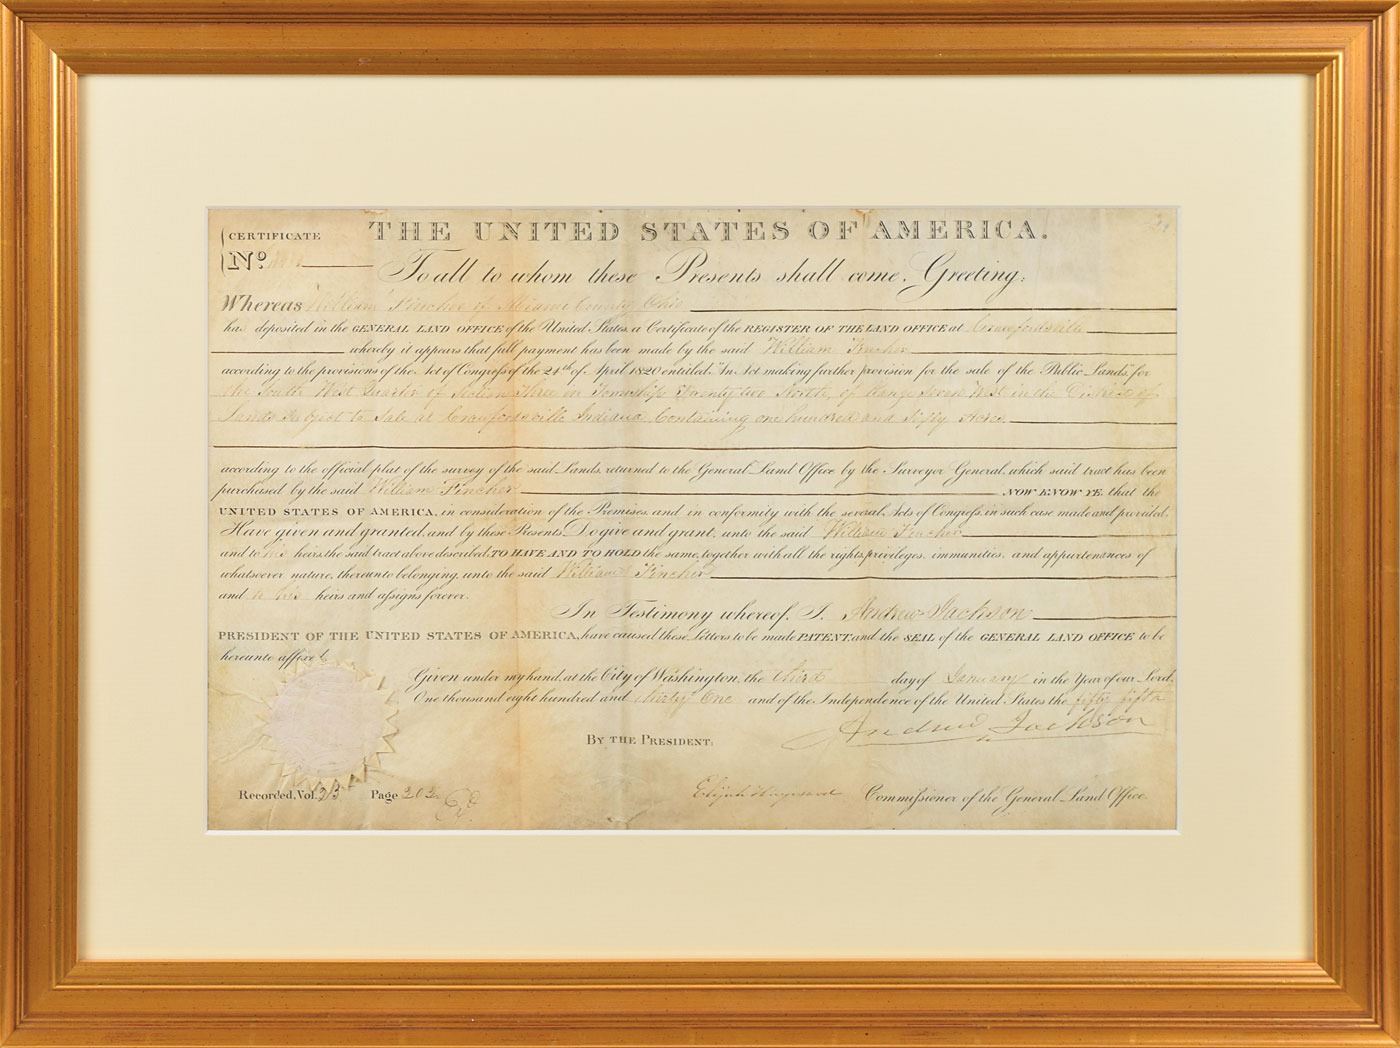 THE UNITED STATES OF AMERICA.
CERTIFICATE
No.
To all to whom these Presents shall come, Greeting:
Whereas William Fincher of Miami County Ohio
has deposited in the GENERAL LAND OFFICE of the United States, a Certificate of the REGISTER OF THE LAND OFFICE at Crawfordsville
whereby it appears that full payment has been made by the said William Fincher
according to the provisions of the Act of Congress of the 24th of April 1820 entitled "An Act making further provision for the sale of the Public Lands," for
the South West Quarter of Section Three in Township Twenty two North, of Range Seven West in the District of
Lands Subject to Sale at Crawfordsville Indiana, Containing one hundred and fifty Acres
according to the official plat of the survey of the said Lands, returned to the General Land Office by the Surveyor General, which said tract has been
purchased by the said William Fincher NOW KNOW YE, that the
UNITED STATES OF AMERICA, in consideration of the Premises, and in conformity with the several Acts of Congress, in such case made and provided,
Have given and granted, and by these Presents Do give and grant, unto the said William Fincher
and to his heirs, the said tract above described, TO HAVE AND TO HOLD the same, together with all the rights, privileges, immunities, and appurtenances of
whatsoever nature, thereunto belonging, unto the said William Fincher
and to his heirs and assigns forever.
In Testimony whereof, I, Andrew Jackson
PRESIDENT OF THE UNITED STATES OF AMERICA, have caused these Letters to be made PATENT, and the SEAL of the GENERAL LAND OFFICE to be
hereunto affixed.
Given under my hand, at the City of Washington, the third day of January in the Year of our Lord,
One thousand eight hundred and thirty One and of the Independence of the United States the fifty fifth
Andrew Jackson
BY THE PRESIDENT:
Elijah Hayward Commissioner of the General Land Office
Recorded, Vol. 23 Page 202